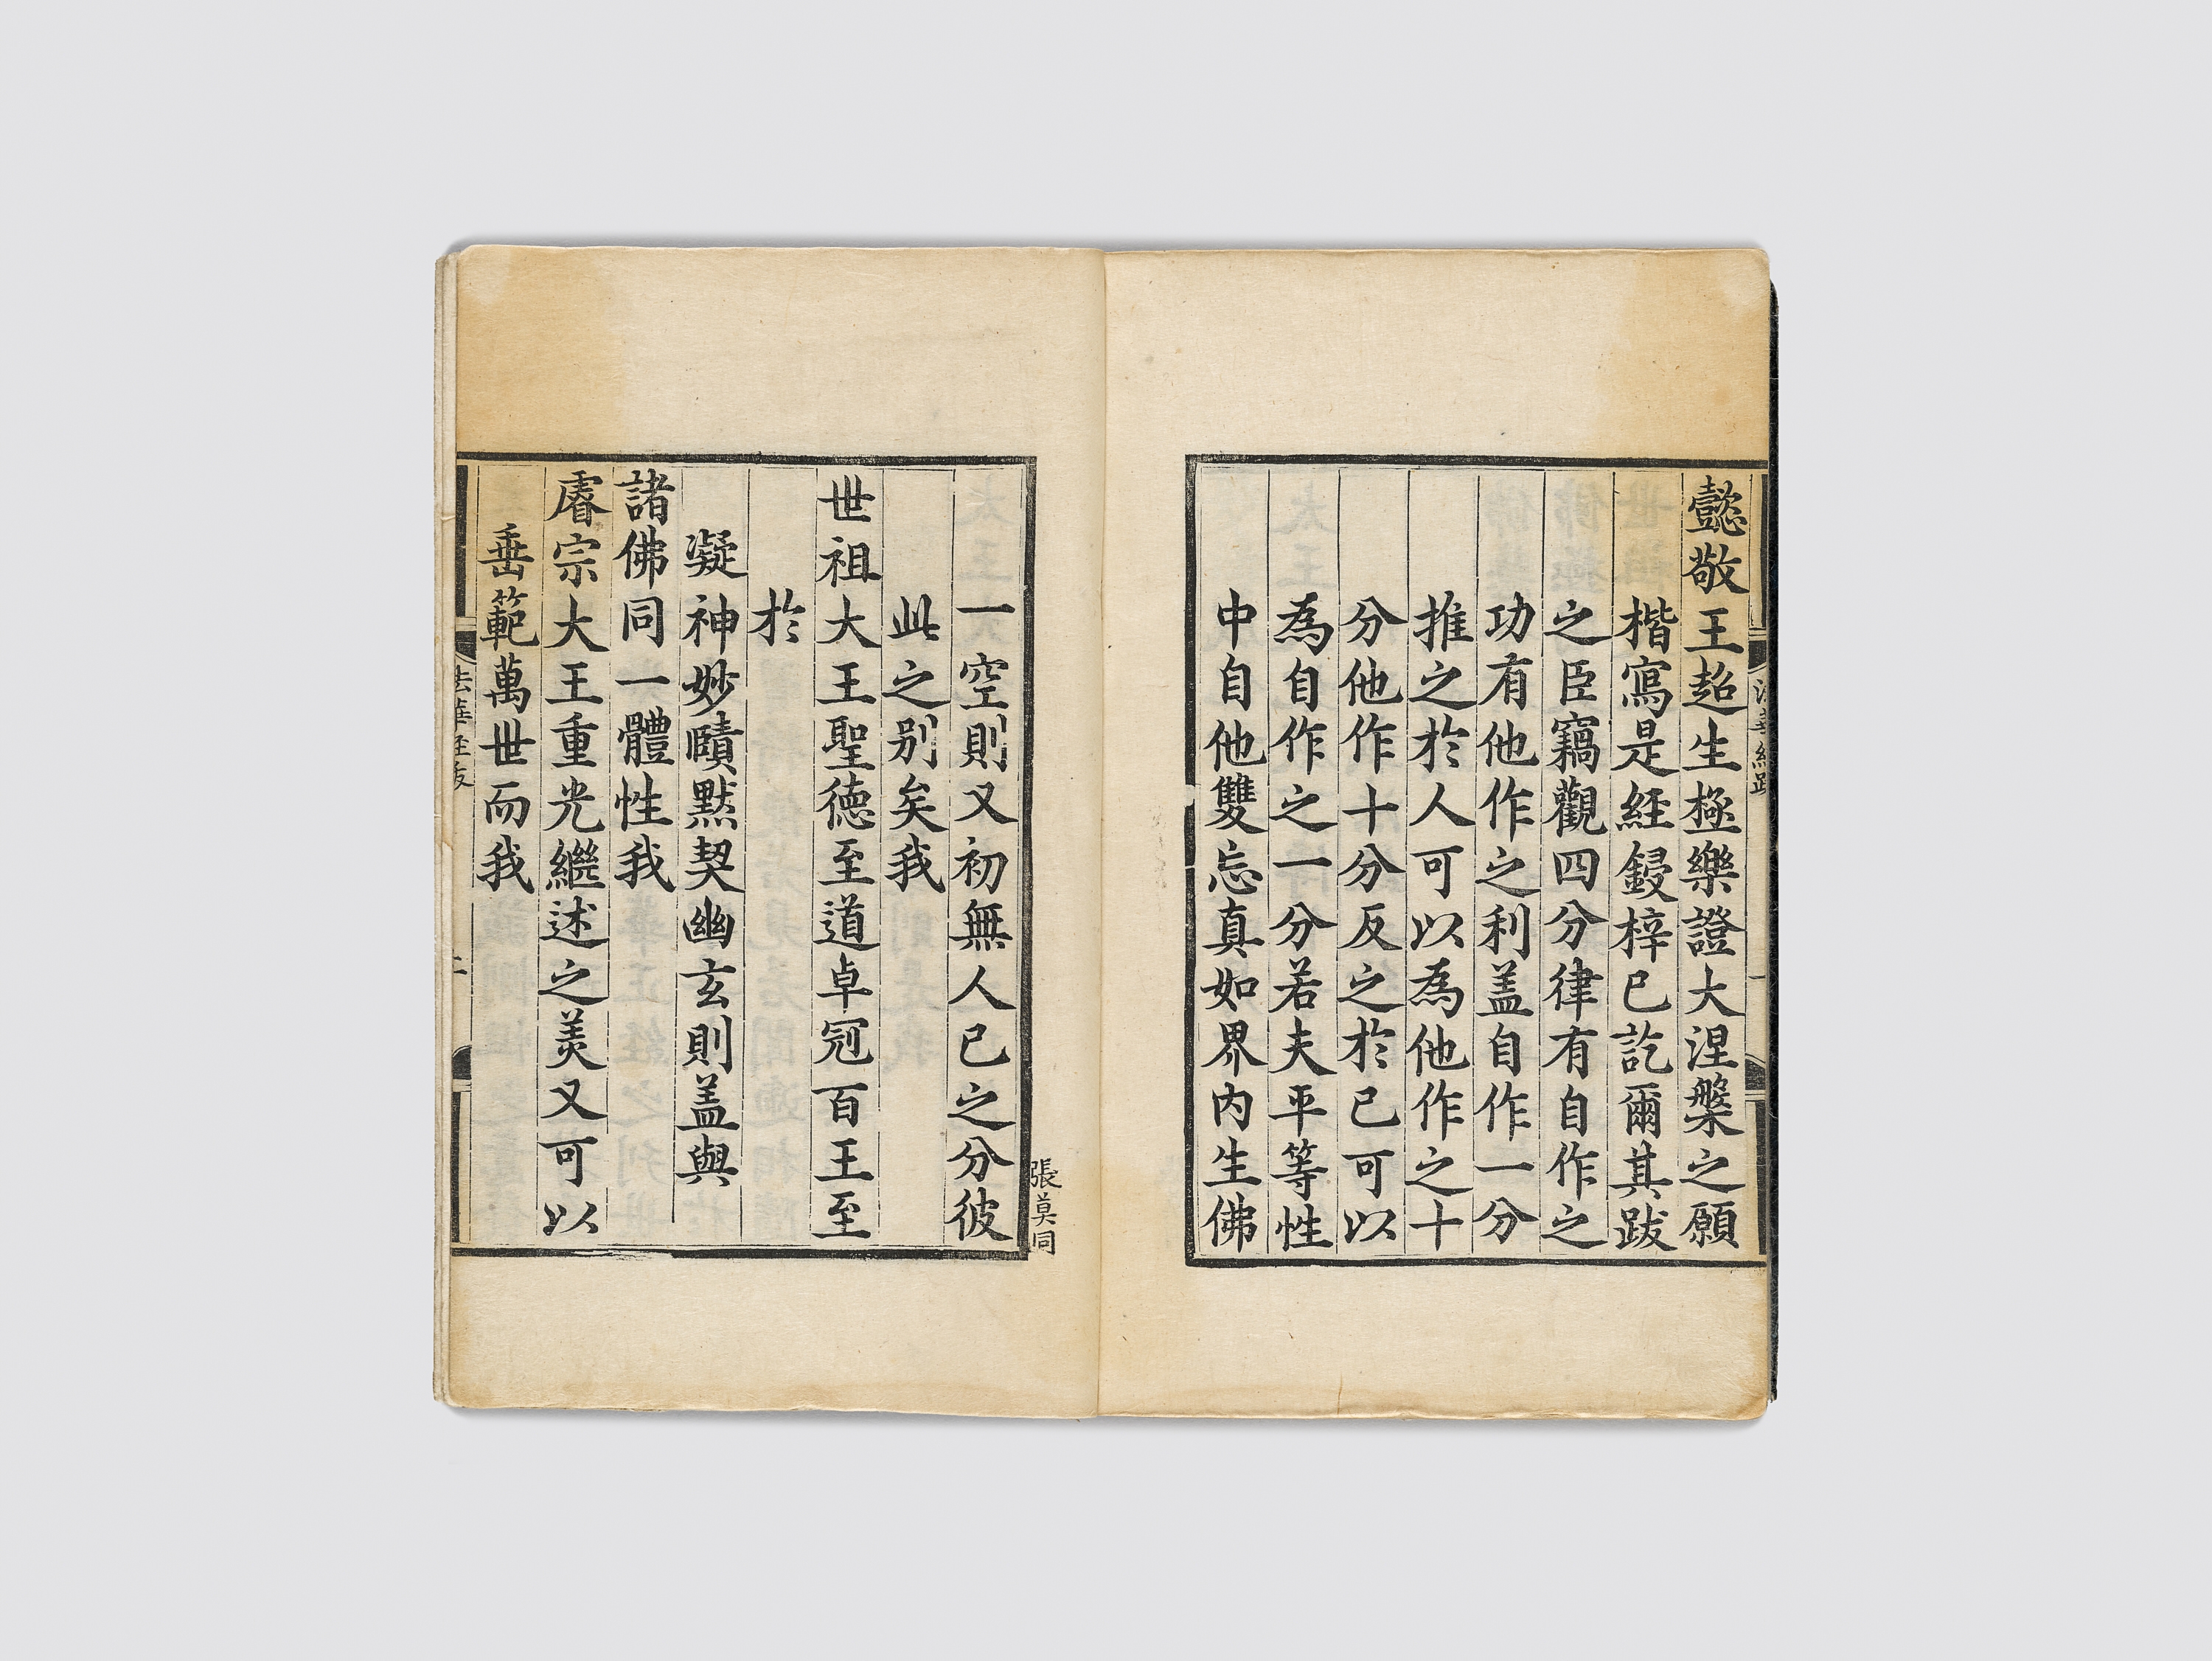 懿敬王超生極樂證大涅槃之願
楷寫是經鋟梓已訖爾其跋
之臣竊觀四分律有自作之
功有他作之利盖自作一分
推之於人可以為他作之十
分他作十分反之於已可以
為自作之一分若夫平等性
中自他雙忘真如界內生佛
一空則又初無人已之分彼
此之别矣我
世祖大王聖德至道卓冠百王至
於
凝神妙賾默契幽玄則盖與
諸佛同一體性我
睿宗大王重光繼述之美又可以
垂範萬世而我
張莫同
法華經跋
一
法華經跋
二